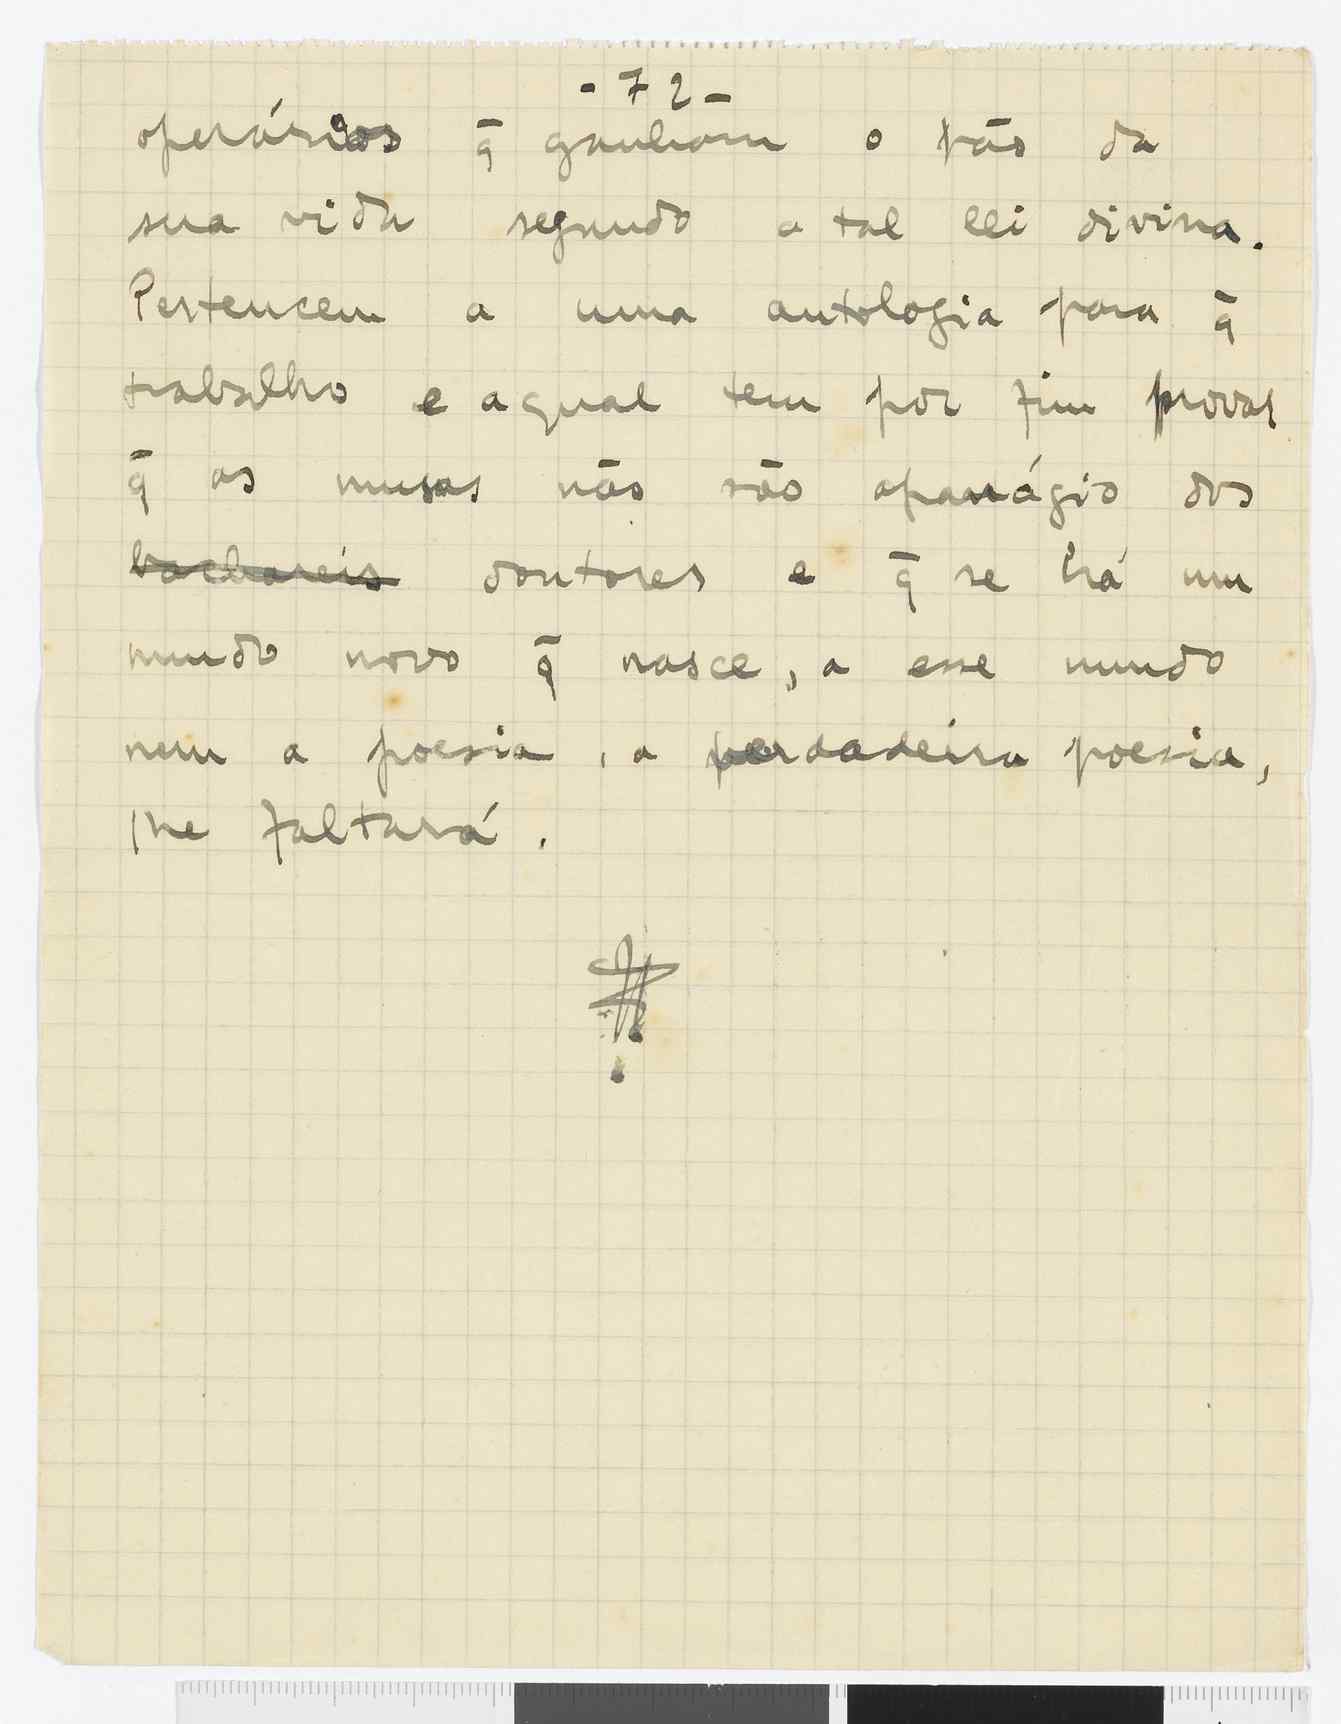 - 72 -
operários q̄ ganham o pão da
sua vida segundo a tal lei divina.
Pertencem a uma antologia para q̄
trabalho e a qual tem por fim provar
q̄ as musas não são apanágio dos
bachareis doutores e q̄ se há um
mundo novo q̄ nasce, a esse mundo
nem a poesia, a verdadeira poesia,
lhe faltará.